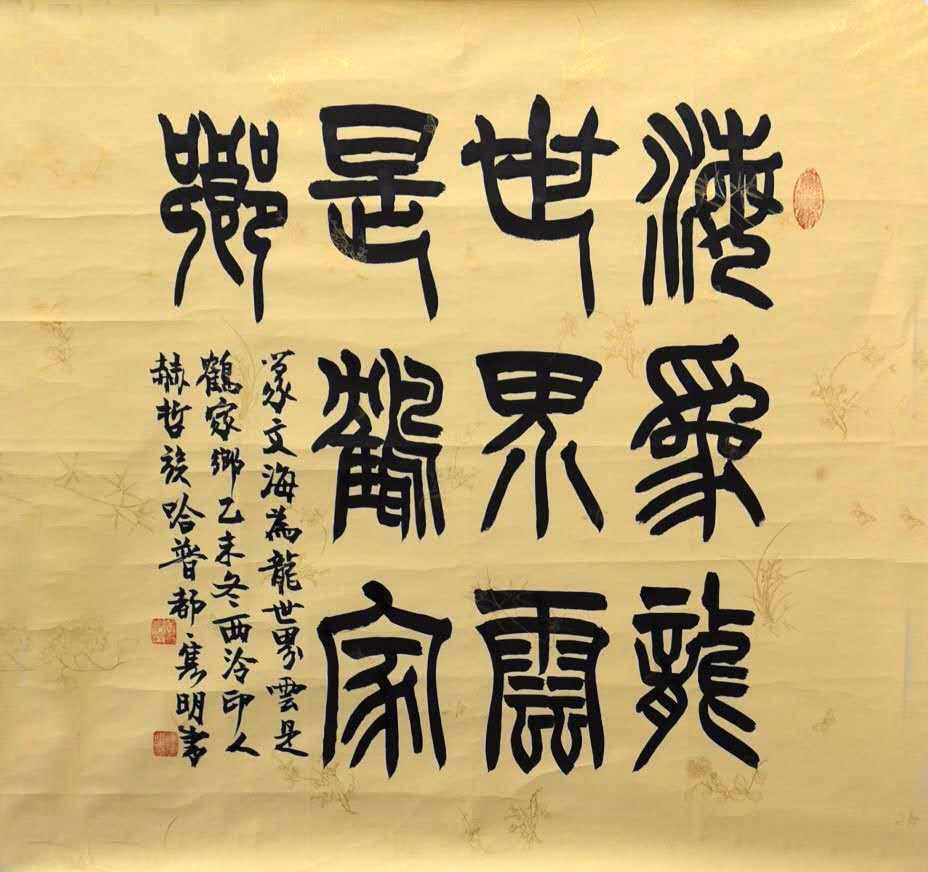 海為龍
世界雲
是鶴家
鄉
篆文海為龍世界雲是
鶴家鄉乙未冬西泠印人
赫哲族哈普都·隽明書